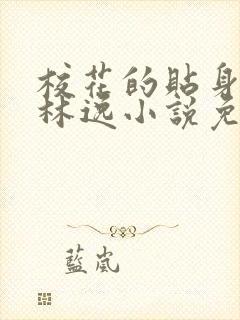 校花的貼身
林逸小說免
藍嵐